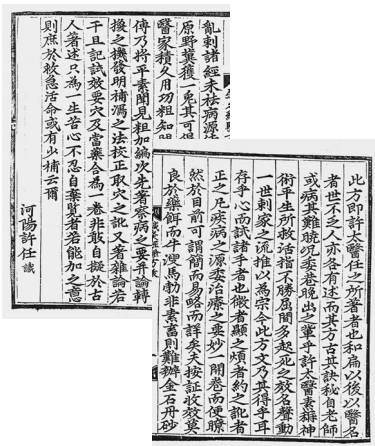 亂刺諸經未祛病源
原野冀獲一兎其可
醫家積久用功粗知
傳乃將平素聞見粗加編次先著察病之要幷論轉
換之機發明補瀉之法校正取穴之訛又著雜論若
干且記試效要穴及當藥合爲一卷非敢自擬於古
人著述只爲一生苦心不忍自棄覽者若能加之意
則庶於救急活命或有少補云爾
河陽許任識
此方即許太醫任之所著者也和扁以後以醫名
者世不乏人亦各有述而其方古其訣秘自老師
或病其難曉況委巷晚出之輩乎許太醫素癖神
術平生所救活指不勝屈間多起死之效名聲動
一世刺家之流推以爲宗今此方文乃其得乎耳
存乎心而試諸手者也微者顯之煩者約之訛者
正之凡疾病之源委治療之要妙一開卷而便瞭
然於目前可謂簡而易略而詳矣夫按証收效莫
良於藥餌而牛溲馬勃非素畜則難辦金石丹砂